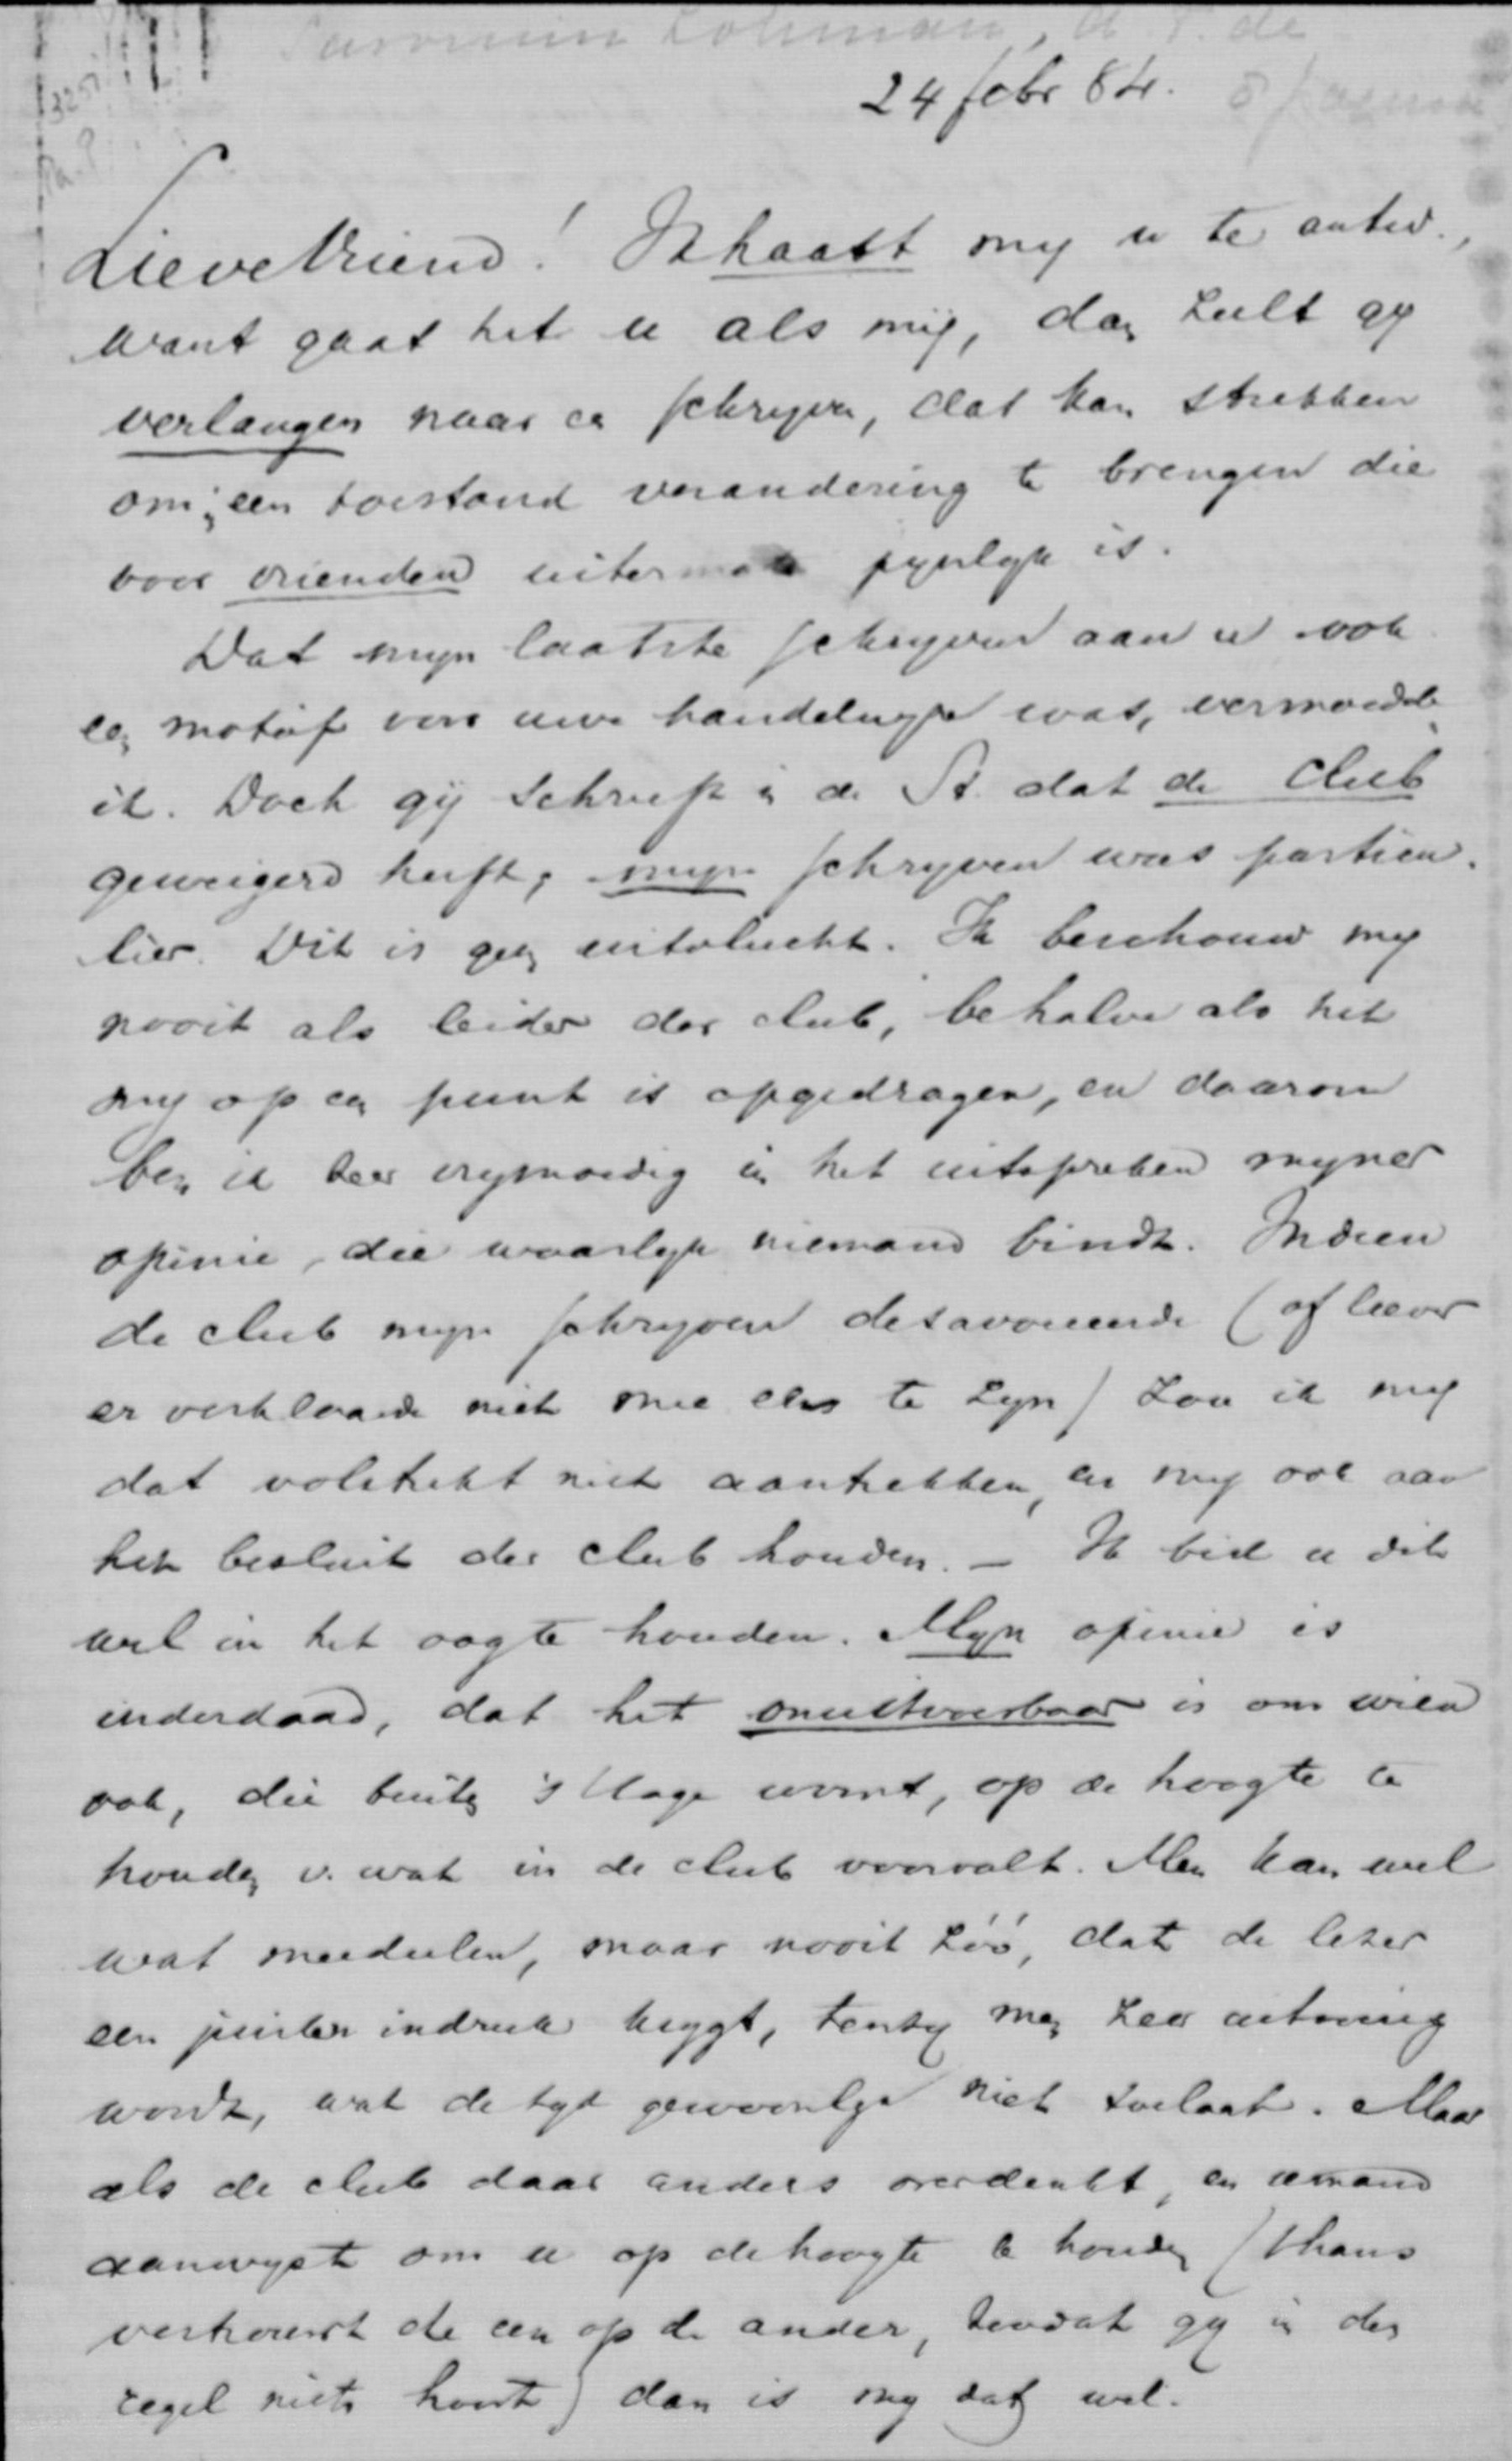 Savornin Lohman, A. F. de
24 febr 84.
Lieve Vriend! Ik haast my u te antw.,
want gaat het u als mij, dan zult gy
verlangen naar een schryven, dat kan strekken
om in een toestand verandering te brengen die
voor vrienden uitermate pynlyk is.
Dat myn laatste schryven aan u ook
een motief voor uwe handelingen was, vermoedde
ik. Doch gij schreeft in de St. dat de club
geweigerd heeft, myn schryven was particu-
lier. Dit is geen uitvlucht. Ik beschouw my
nooit als leider der club, behalve als het
my op een punt is opgedragen, en daarom
ben ik zeer vrymoedig in het uitspreken myner
opinie, die waarlyk niemand bindt. Indien
de club myn schryven desavoueerde (of liever
er verklaarde niet mee eens te zyn) zou ik my
dat volstrekt niet aantrekken, en my ook aan
het besluit der club houden. — Ik bid u dit
wel in het oog te houden. Myn opinie is
inderdaad, dat het onuitvoerbaar is om wien
ook, die buiten 's Hage woont, op de hoogte te
houden v. wat in de club voorvalt. Men kan wel
wat meedeelen, maar nooit zóó, dat de lezer
een juisten indruk krygt, tenzy men zeer uitvoerig
wordt, wat de tyd gewoonlyk niet toelaat. Maar
als de club daar anders over denkt, en iemand
aanwyst om u op de hoogte te houden (thans
vertrouwt de een op de ander, zoodat gy in den
regel niets hoort) dan is my dat wel.